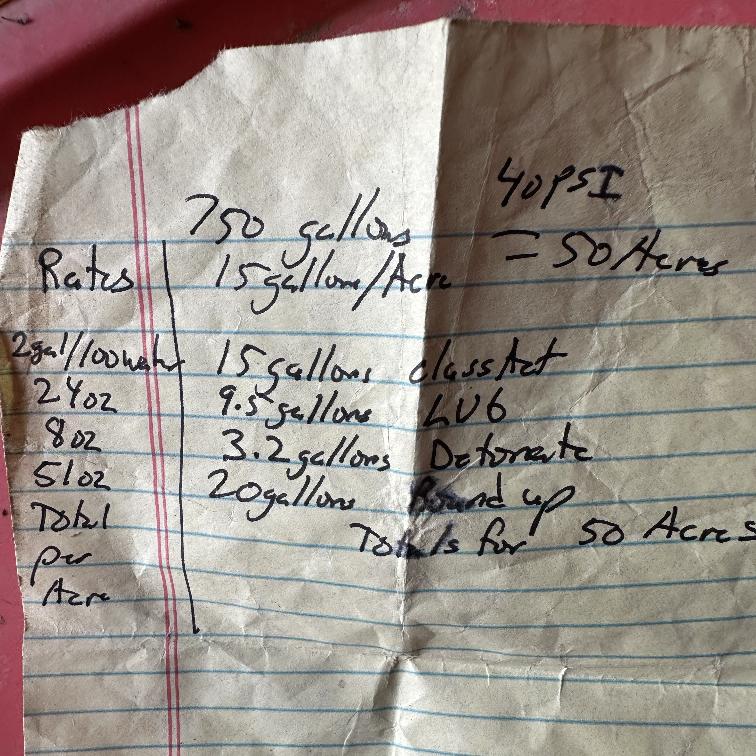 40PSI
750 gallons
= 50 Acres
Rates 15 gallons/Acre
2gal/100water 15 gallons ClassAct
24oz 9.5 gallons LV6
8oz 3.2 gallons Detonate
51oz 20 gallons Round up
Total Totals for 50 Acres
per
Acre